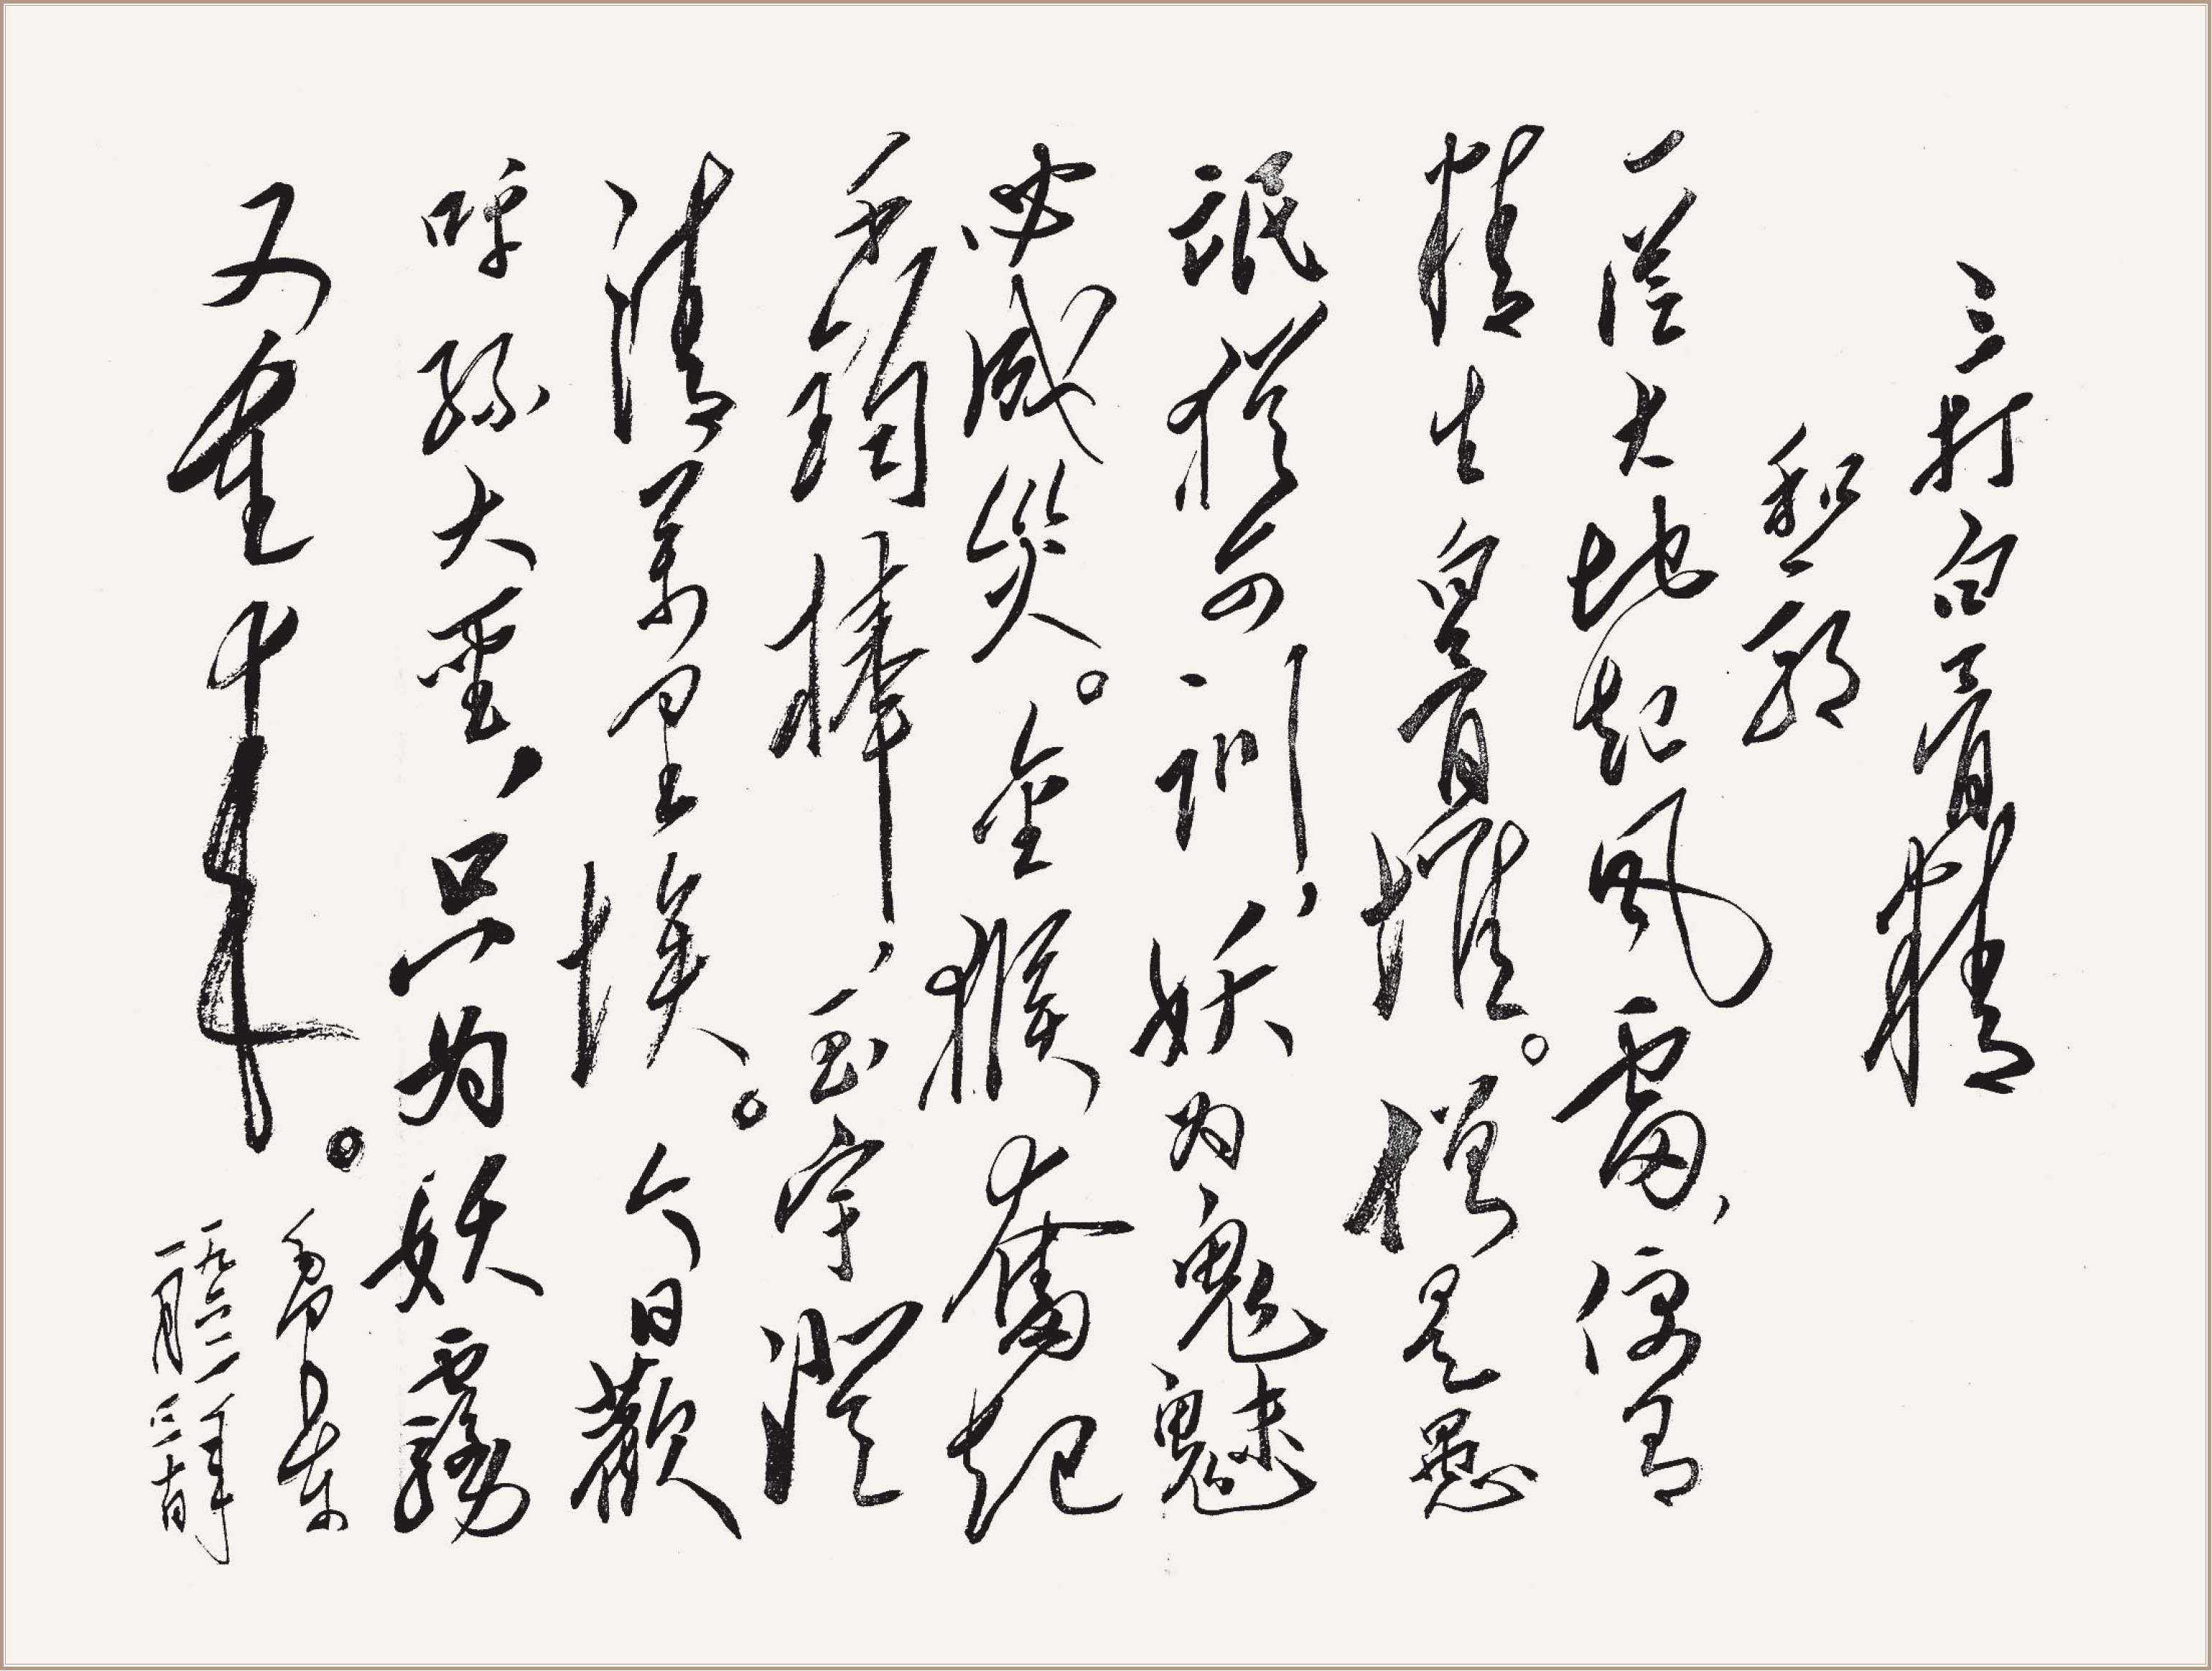 三打白骨精
和郭
一從大地起風雷，便有
精生白骨堆。僧是愚
氓猶可訓，妖为鬼魅
必成災。金猴奮起
千鈞棒，玉宇澄
清萬里埃。今日歡
呼孫大聖，只为妖霧
又重来。
毛澤东
一九六二年
一月